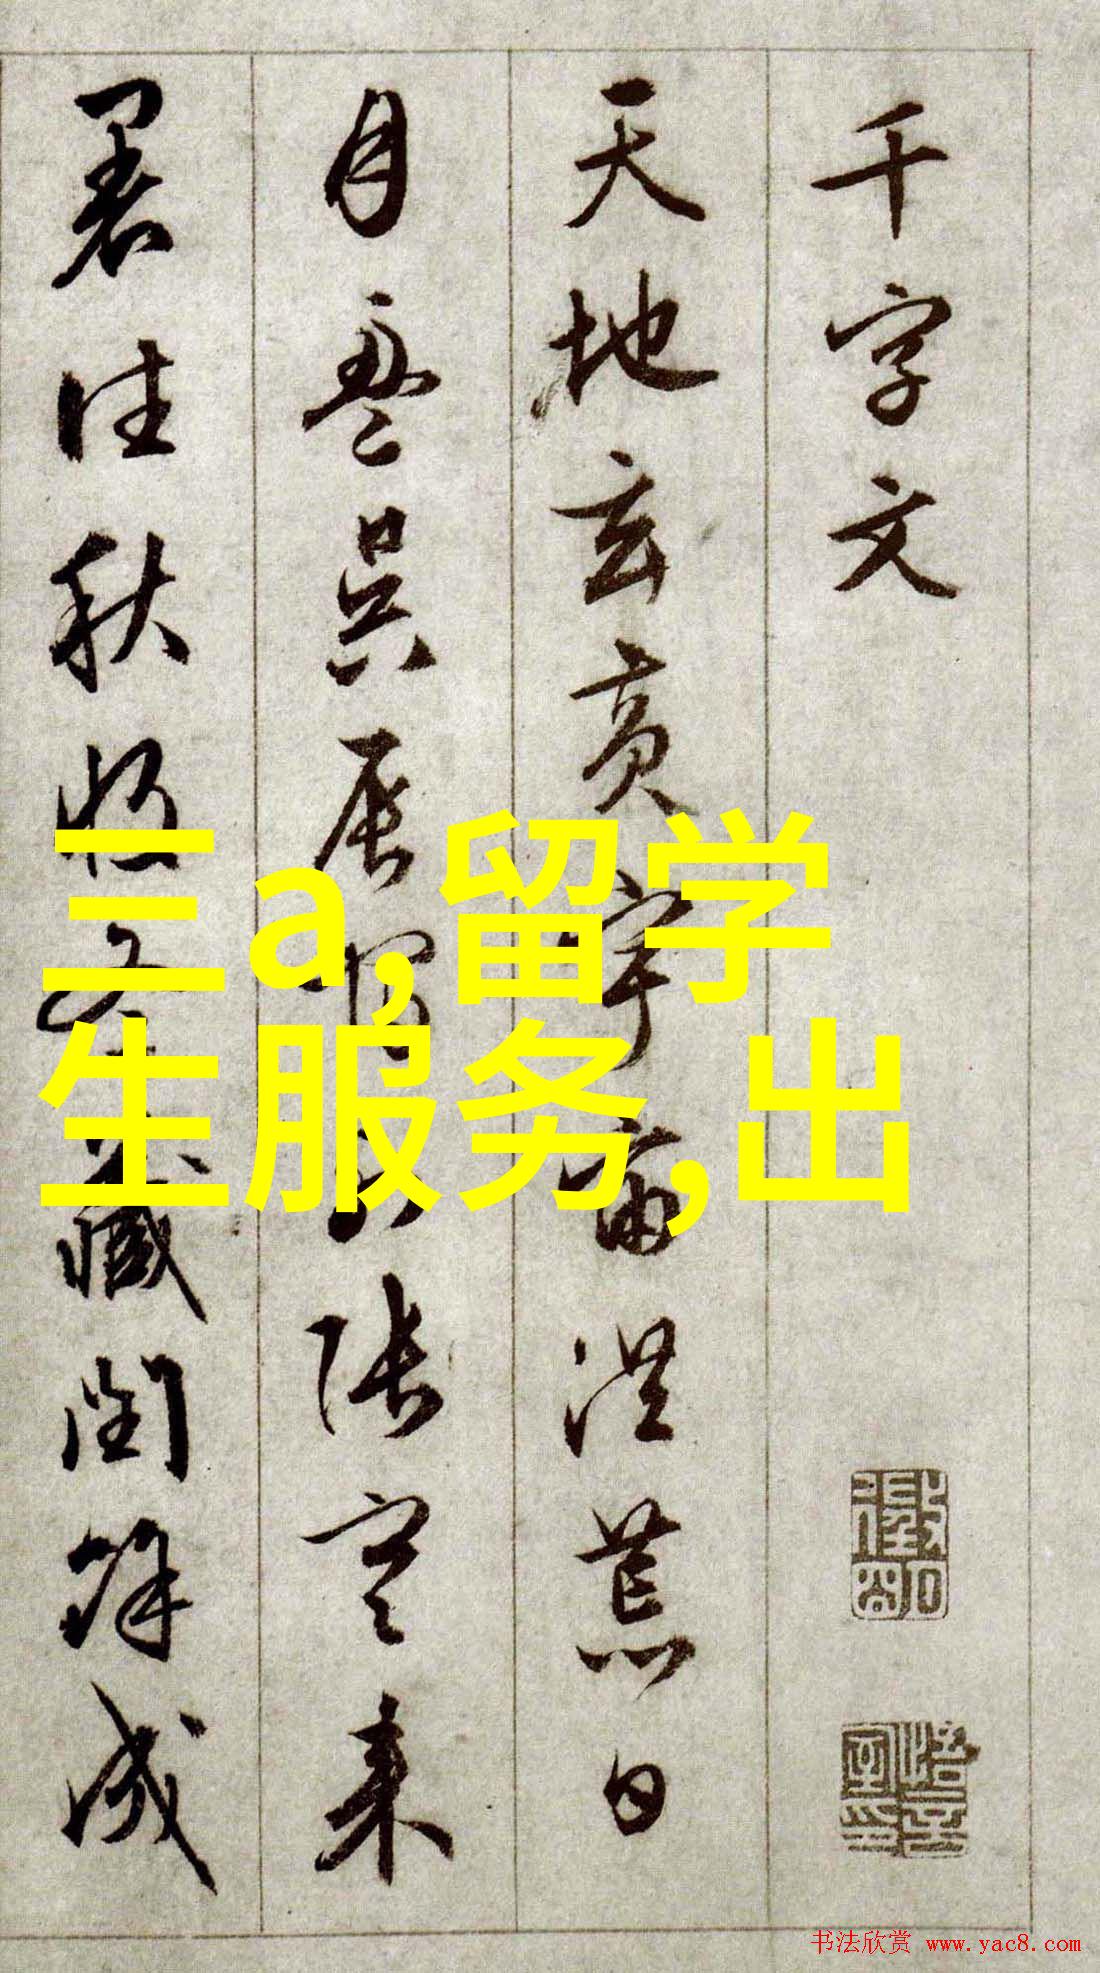 千字文
天地玄黃宇宙洪荒日
月盈昃辰張寒来
暑往秋收冬藏閏餘成
三a,留学
生服务,出
书法欣赏 www.yac8.com